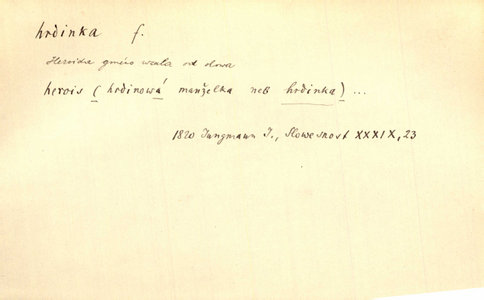 hrdinka f.
Heroida gméno wzala od slowa
herois (hrdinowá manželka neb hrdinka) ...
1820 Jungmann J., Slowesnost XXXIX, 23